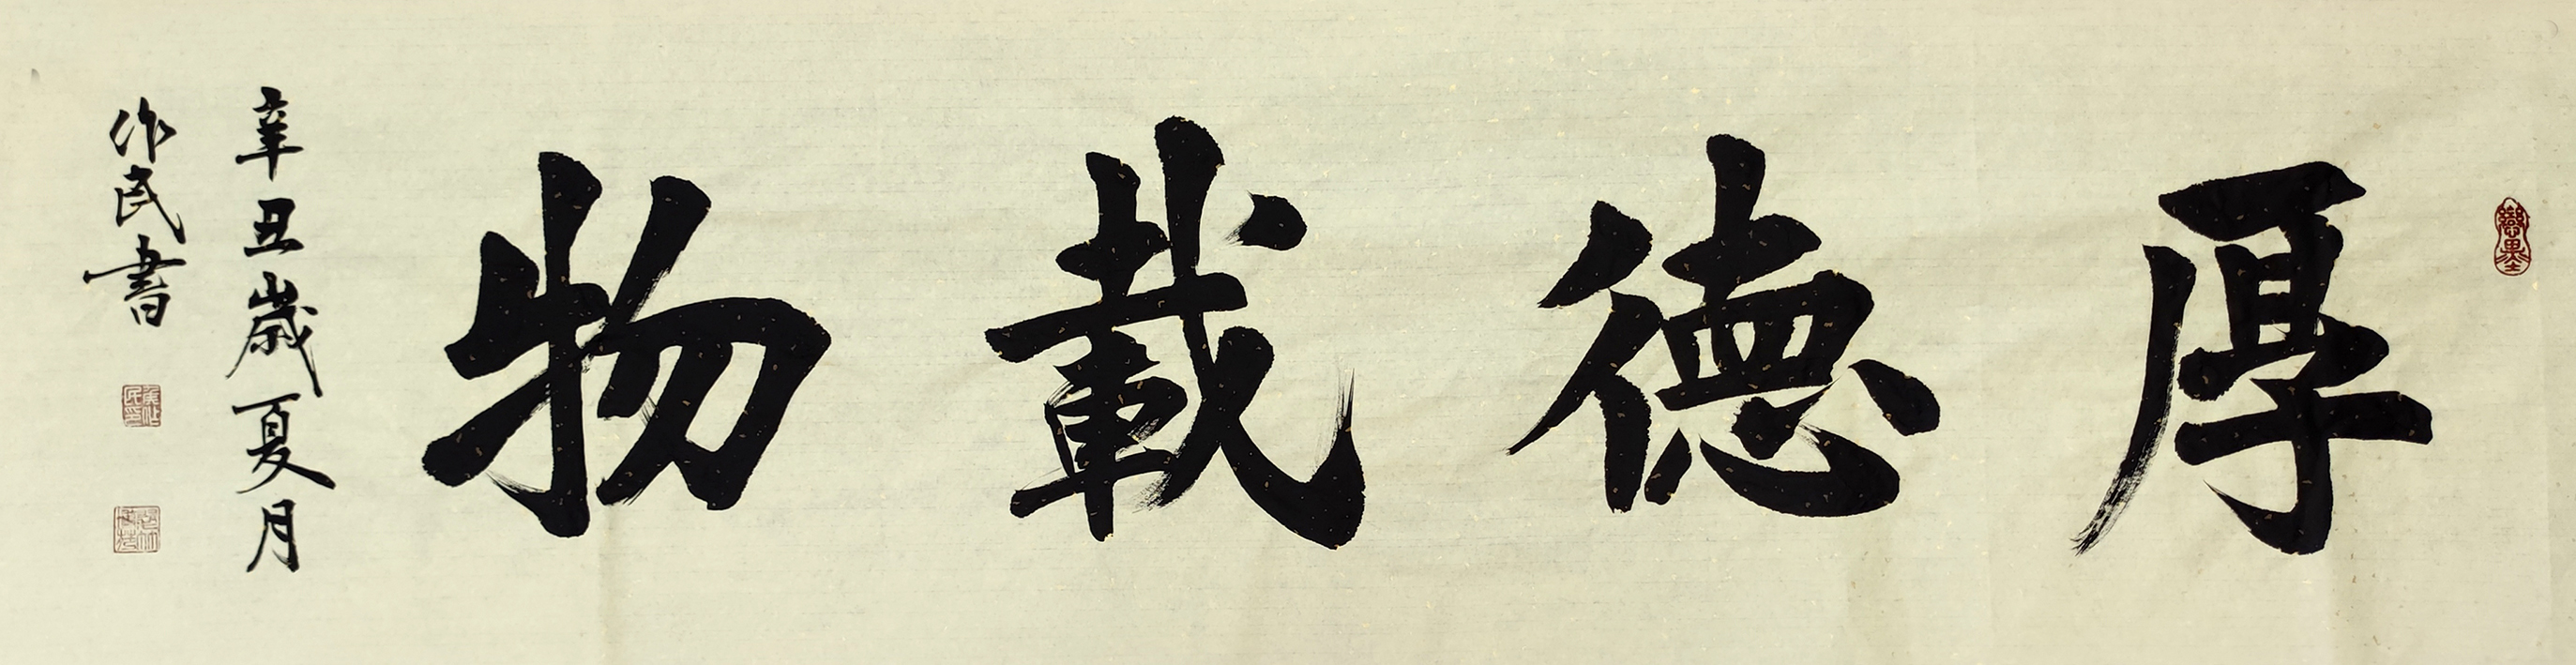 厚德載物
辛丑歲夏月
作民書